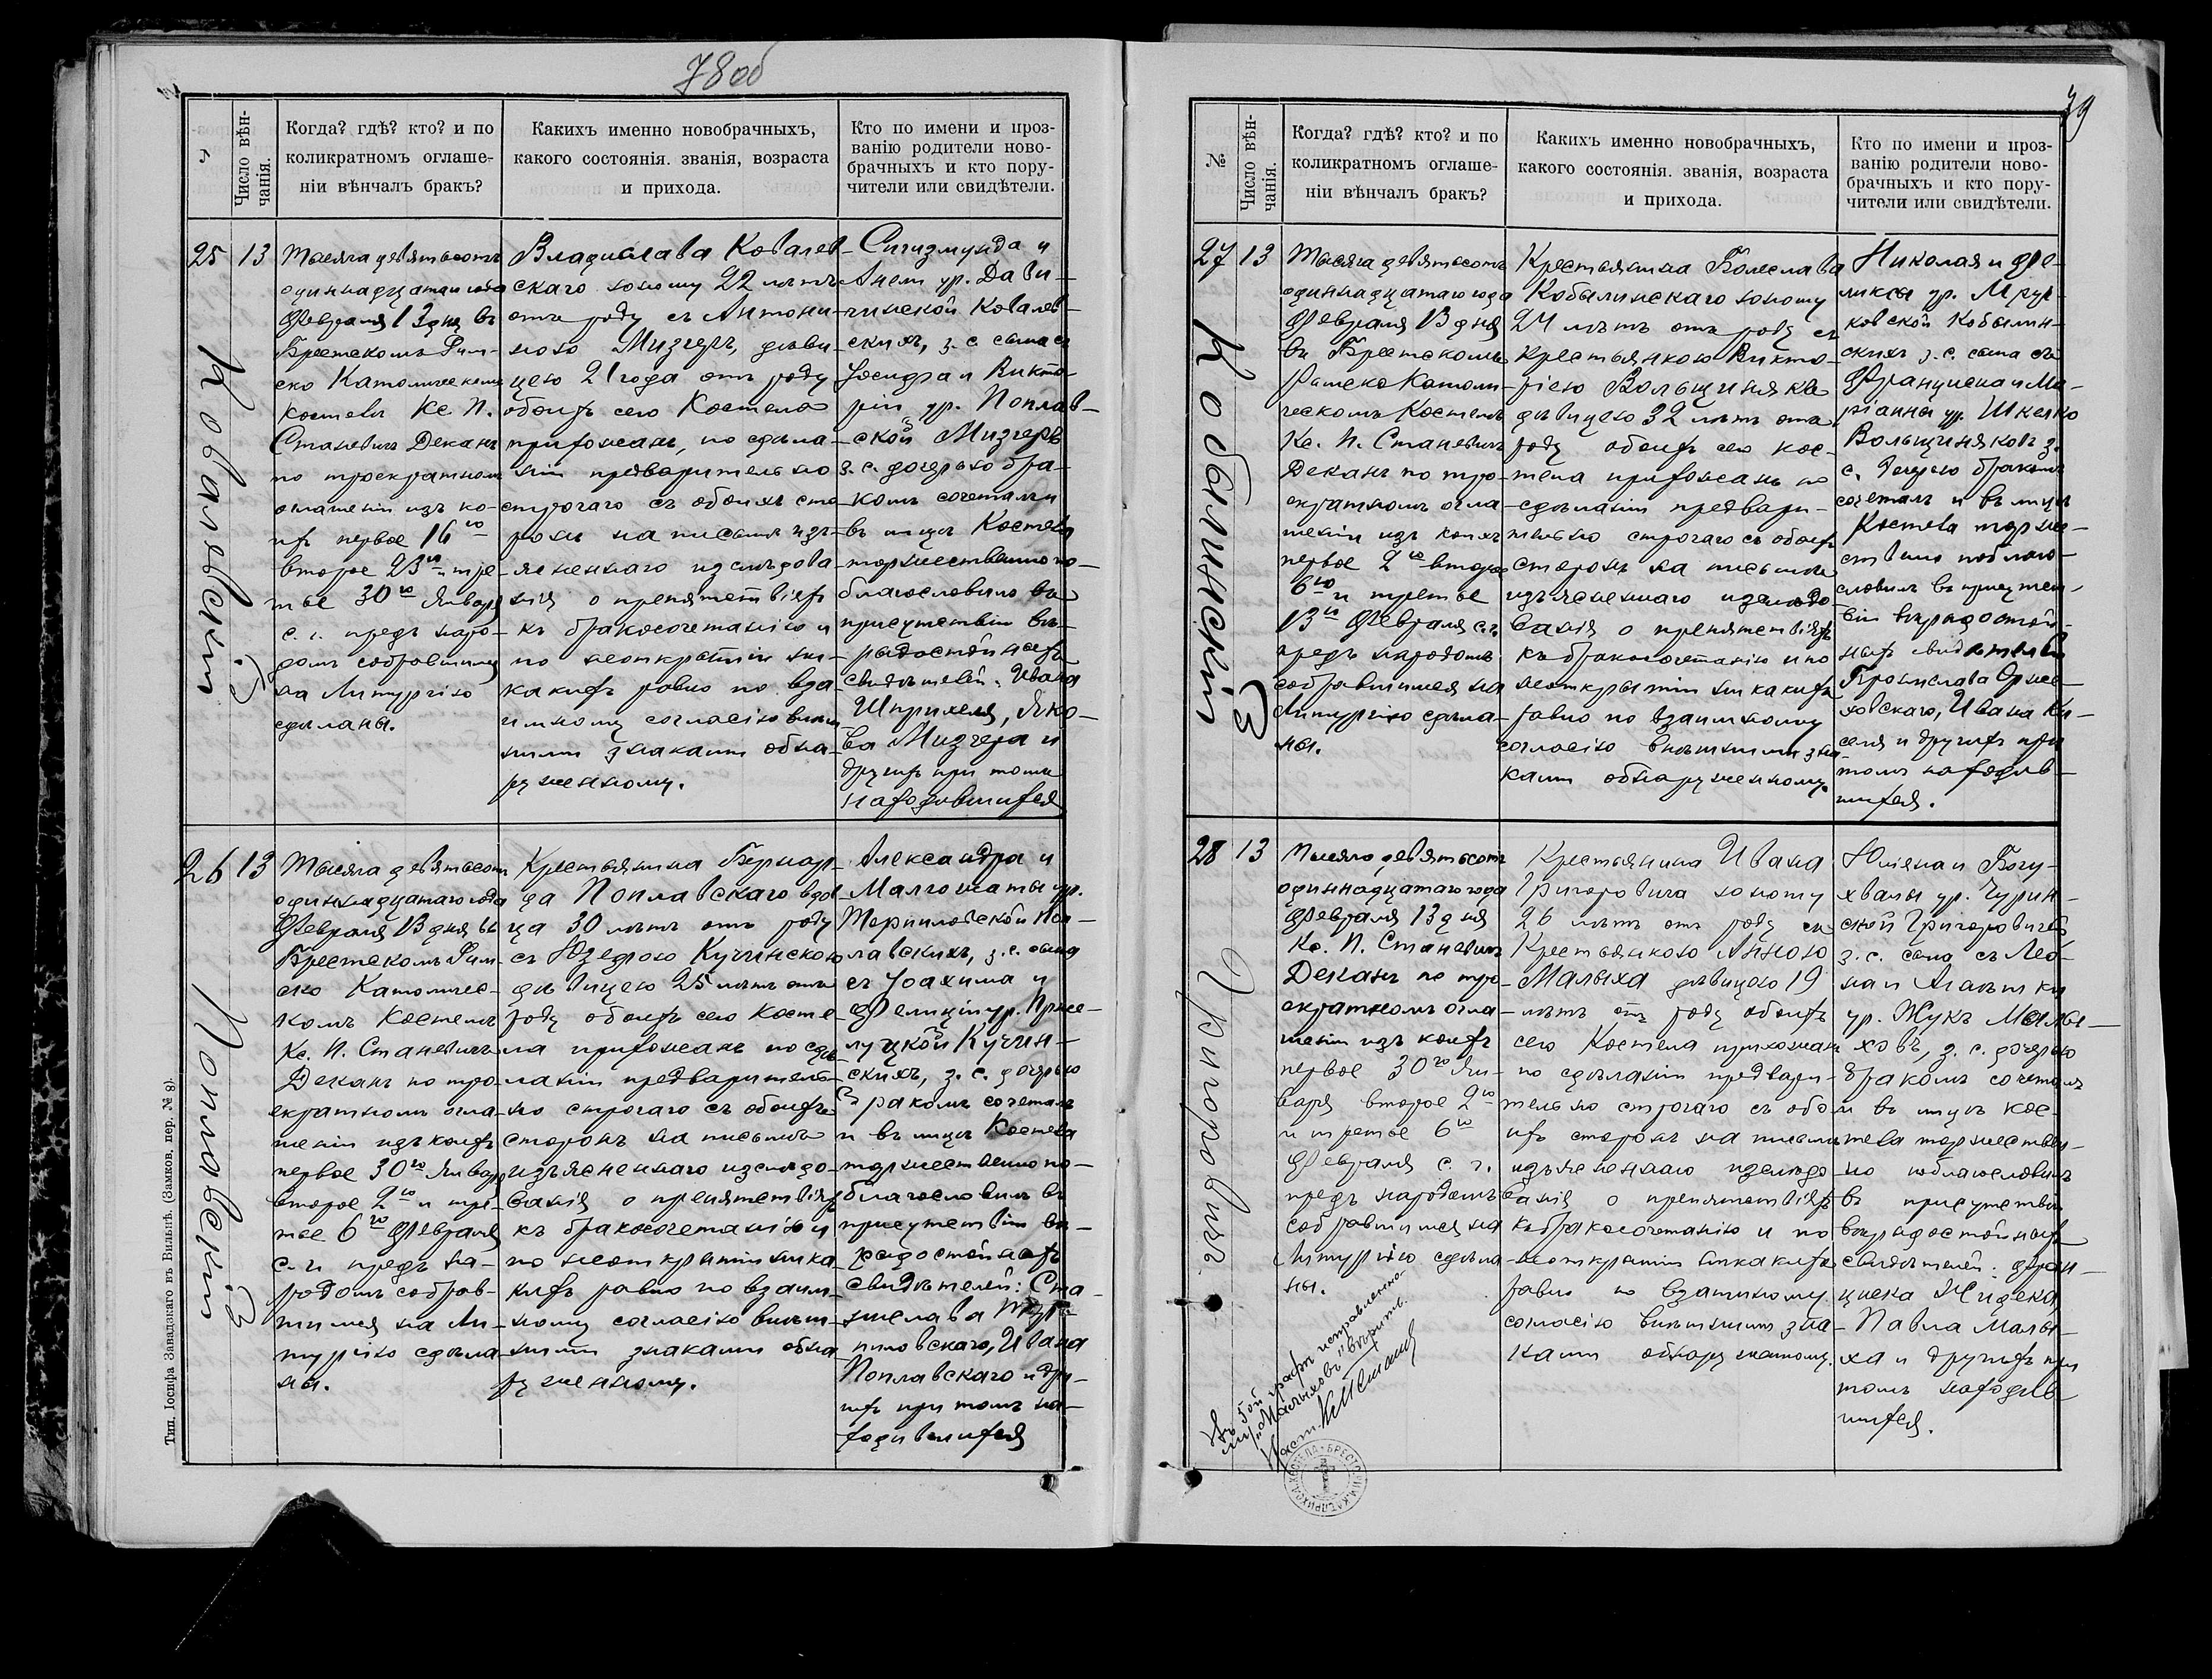 78 об
№
Число вѣн-
чанія.
Когда? гдѣ? кто? и по
коликратномъ оглаше-
ніи вѣнчалъ бракъ?
Какихъ именно новобрачныхъ,
какого состоянія. званія, возраста
и прихода.
Кто по имени и проз-
ванію родители ново-
брачныхъ и кто пору-
чители или свидѣтели.
25
13
Ковалевскій
Тысяча девятьсотъ
одиннадцатаго года
Февраля 13 дня въ
Брестскомъ Рим-
ско Католическомъ
Костелѣ Кс. П.
Станевичъ Деканъ
по троекратномъ
оглашеніи изъ ко-
ихъ первое 16го
второе 23го и тре-
тье 30го Января
с. г. предъ наро-
домъ собравшимся
на Литургію
сдѣланы.
Владислава Ковалев-
скаго юношу 22 лѣтъ
отъ роду съ Антони-
ною Мизгеръ, дѣви-
цею 21 года отъ роду
обоихъ сего Костела
прихожанъ, по сдѣла-
ніи предварительно
строгаго съ обоихъ сто
ронъ на письмѣ изъ-
ясненнаго изслѣдова-
нія о препятствіяхъ
къ бракосочетанію и
по неоткрытіи ни-
какихъ равно по вза-
имному согласію внѣш
ними знаками обна-
руженному.
Сигизмунда и
Анели ур. Дави-
чинской Ковалев-
скихъ, з. с. сына съ
Іосифа и Викто-
ріи ур. Поплав-
ской Мизгеръ
з. с. дочерью бра-
комъ сочеталъ и
въ лицѣ Костела
торжественно по-
благословилъ въ
присутствіи вѣ-
рыдостойныхъ
свидѣтелей: Ивана
Шприхеля, Яко-
ва Мизгера и
другихъ при томъ
находившихся
26
13
Поплавскій
Тысяча девятьсотъ
одиннадцатаго года
Февраля 13 дня въ
Брестскомъ Рим-
ско Католичес-
комъ Костелѣ
Кс. П. Станевичъ
Деканъ по тро-
екратномъ огла-
шеніи изъ коихъ
первое 30го Января
второе 2го и тре-
тье 6го Февраля
с. г. предъ на-
родомъ собрав-
шимся на Ли-
тургію сдѣла
ны.
Крестьянина Бернар-
да Поплавскаго вдов
ца 30 лѣтъ отъ роду
съ Юзефою Кучинскою
дѣвицею 25 лѣтъ отъ
роду обоихъ сего Косте-
ла прихожанъ по сдѣ
ланіи предваритель-
но строгаго съ обоихъ
сторонъ на письмѣ
изъясненнаго изслѣдо-
ванія о препятствіяхъ
къ бракосочетанію и
по неоткрытіи ника
кихъ равно по взаим-
ному согласію внѣш-
ними знаками обна
руженному.
Александра и
Малгожаты ур.
Терпиловской Поп-
лавскихъ, з. с. сына
съ Іоахима и
Фелиціи ур. Прже-
луцкой Кучин-
скихъ, з. с. дочерью
бракомъ сочеталъ
и въ лицѣ Костела
торжественно по-
благословилъ въ
присутствіи вѣ-
рыдостойныхъ
свидѣтелей: Ста-
нислава Тер-
пиловскаго, Ивана
Поплавскаго и дру-
ихъ при томъ на-
ходившихся
Тип. Іосифа Завадзкаго въ Вильнѣ. (Замков. пер. № 8).
79
№
Число вѣн-
чанія.
Когда? гдѣ? кто? и по
коликратномъ оглаше-
ніи вѣнчалъ бракъ?
Какихъ именно новобрачныхъ,
какого состоянія. званія, возраста
и прихода.
Кто по имени и проз-
ванію родители ново-
брачныхъ и кто пору-
чители или свидѣтели.
27
13
Кобылинскій
Тысяча девятьсотъ
одиннадцатаго года
Февраля 13 дня
въ Брестскомъ
Римско Католи-
ческомъ Костелѣ
Кс. П. Станевичъ
Деканъ по тро-
екратномъ огла-
шеніи изъ коихъ
первое 2го второе
6го и третье
13го Февраля с. г.
предъ народомъ
собравшимся на
Литургію сдѣла-
ны.
Крестьянина Болеслава
Кобылинскаго юношу
24 лѣтъ отъ роду съ
Крестьянкою Викто-
ріею Вольщинякъ
дѣвицею 32 лѣтъ отъ
роду обоихъ сего кос-
тела прихожанъ по
сдѣланіи предвари-
тельно строгаго съ обоихъ
сторонъ на письмѣ
изъясненнаго изслѣдо-
ванія о препятствіяхъ
къ бракосочетанію и по
неоткрытіи никакихъ
равно по взаимному
согласію внѣшними зна
ками обнаруженному.
Николая и Фе-
ликсы ур. Мрук-
ковской Кобылин-
скихъ з. с. сына съ
Франциска и Ма-
ріанны ур. Шкелко
Вольщиняковъ з.
с. дочерью бракомъ
сочеталъ и въ лицѣ
Костела торже-
ственно поблаго-
словилъ въ присутст-
віи вѣрыдостой-
ныхъ свидѣтелей
Бронислава Орже-
ховскаго, Ивана Ки-
селя и другихъ при
томъ находив-
шихся.
28
13
Григоровичъ.
Тысяча девятьсотъ
одиннадцатаго года
Февраля 13 дня
Кс. П. Станевичъ
Деканъ по тро-
екратномъ огла-
шеніи изъ коихъ
первое 30го Ян-
варя второе 2го
и третье 6го
Февраля с. г.
предъ народомъ
собравшимся на
Литургію сдѣла-
ны.
Крестьянина Ивана
Григоровича юношу
26 лѣтъ отъ роду съ
Крестьянкою Анною
Малыха дѣвицею 19
лѣтъ отъ роду обоихъ
сего Костела прихожанъ
по сдѣланіи предвари-
тельно строгаго съ обо
ихъ сторонъ на письмѣ
изъясненнаго изслѣдо
ванія о препятствіяхъ
къ бракосочетанію и по
неоткрытіи никакихъ
равно по взаимному
согласію внѣшними зна-
ками обнаруженному.
Юліяна и Богу-
хвалы ур. Чурин-
ской Григоровичей
з. с. сына съ Лео-
на и Агаѳіи
ур. Жукъ Малы-
ховъ, з. с. дочерью
бракомъ сочеталъ
и въ лицѣ Кос-
тела торжествен-
но поблагословилъ
въ присутствіи
вѣрыдостойныхъ
свидѣтелей: Фран-
циска Жидека,
Павла Малы-
ха и другихъ при
томъ находив-
шихся.
Въ 5ой графѣ исправлено
„Малыховъ" вѣрить.
Наст. Кс. П. Станев